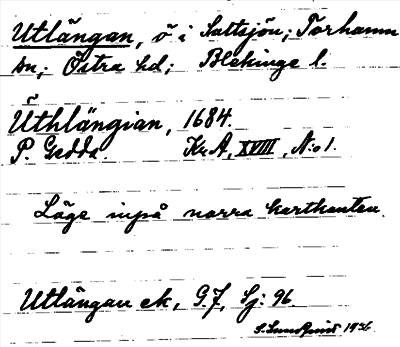 Utlängan, ö i Saltsjön; Torhamn
sn; Östra hd; Blekinge l.
Üthlängian, 1684.
P. Gedda. Kr. A, XVIII, N:o 1.
Läge inpå norra kartkanten.
Utlängan ek, G.J, Sj: 96.
S. Sundquist 1936